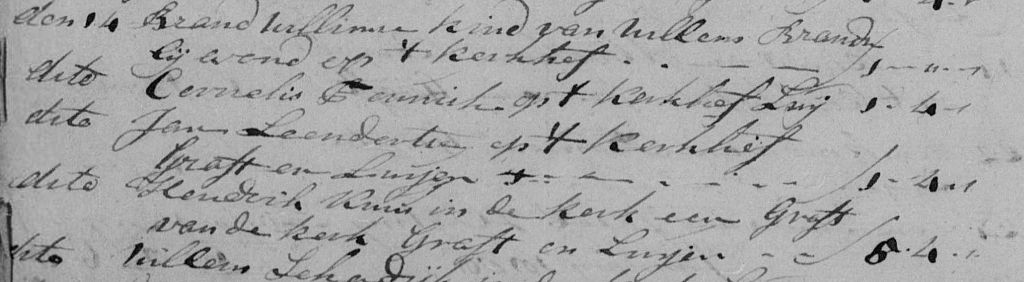 den 14 Brand Willimse kind van Willem Brands
Lij avond op 't Kerkhef . . — — — / 1 - " - "
dito Cornelis Teunisk op 't Kerkhef Luij 1 - 4 -
dito Jan Leendertse op 't Kerkhef
Graft en Luijen - - - - / 1 - 4 -
dito Hendrik Kuis in de Kerk een Graft
van de Kerk Graft en Luijen - - / 8 - 4 -
dito Willem